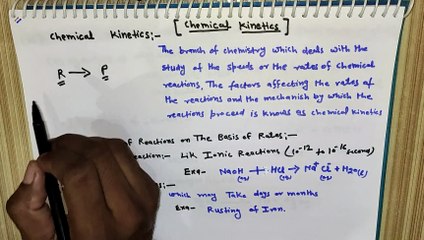 [ Chemical Kinetics ]
Chemical Kinetics;-
The branch of chemistry which deals with the
study of the speeds or the rates of chemical
reactions, The factors affecting the rates of
the reactions and the mechanism by which the
reactions proceed is known as chemical kinetics
R → P
f Reactions on The Basis of Rates;-
eaction:- Lik Ionic Reactions (10-12 to 10-16 second)
Exo- NaOH + HCl → Na+ Cl- + H2O(l)
s;-
which may Take days or months
Exo- Rusting of Iron.